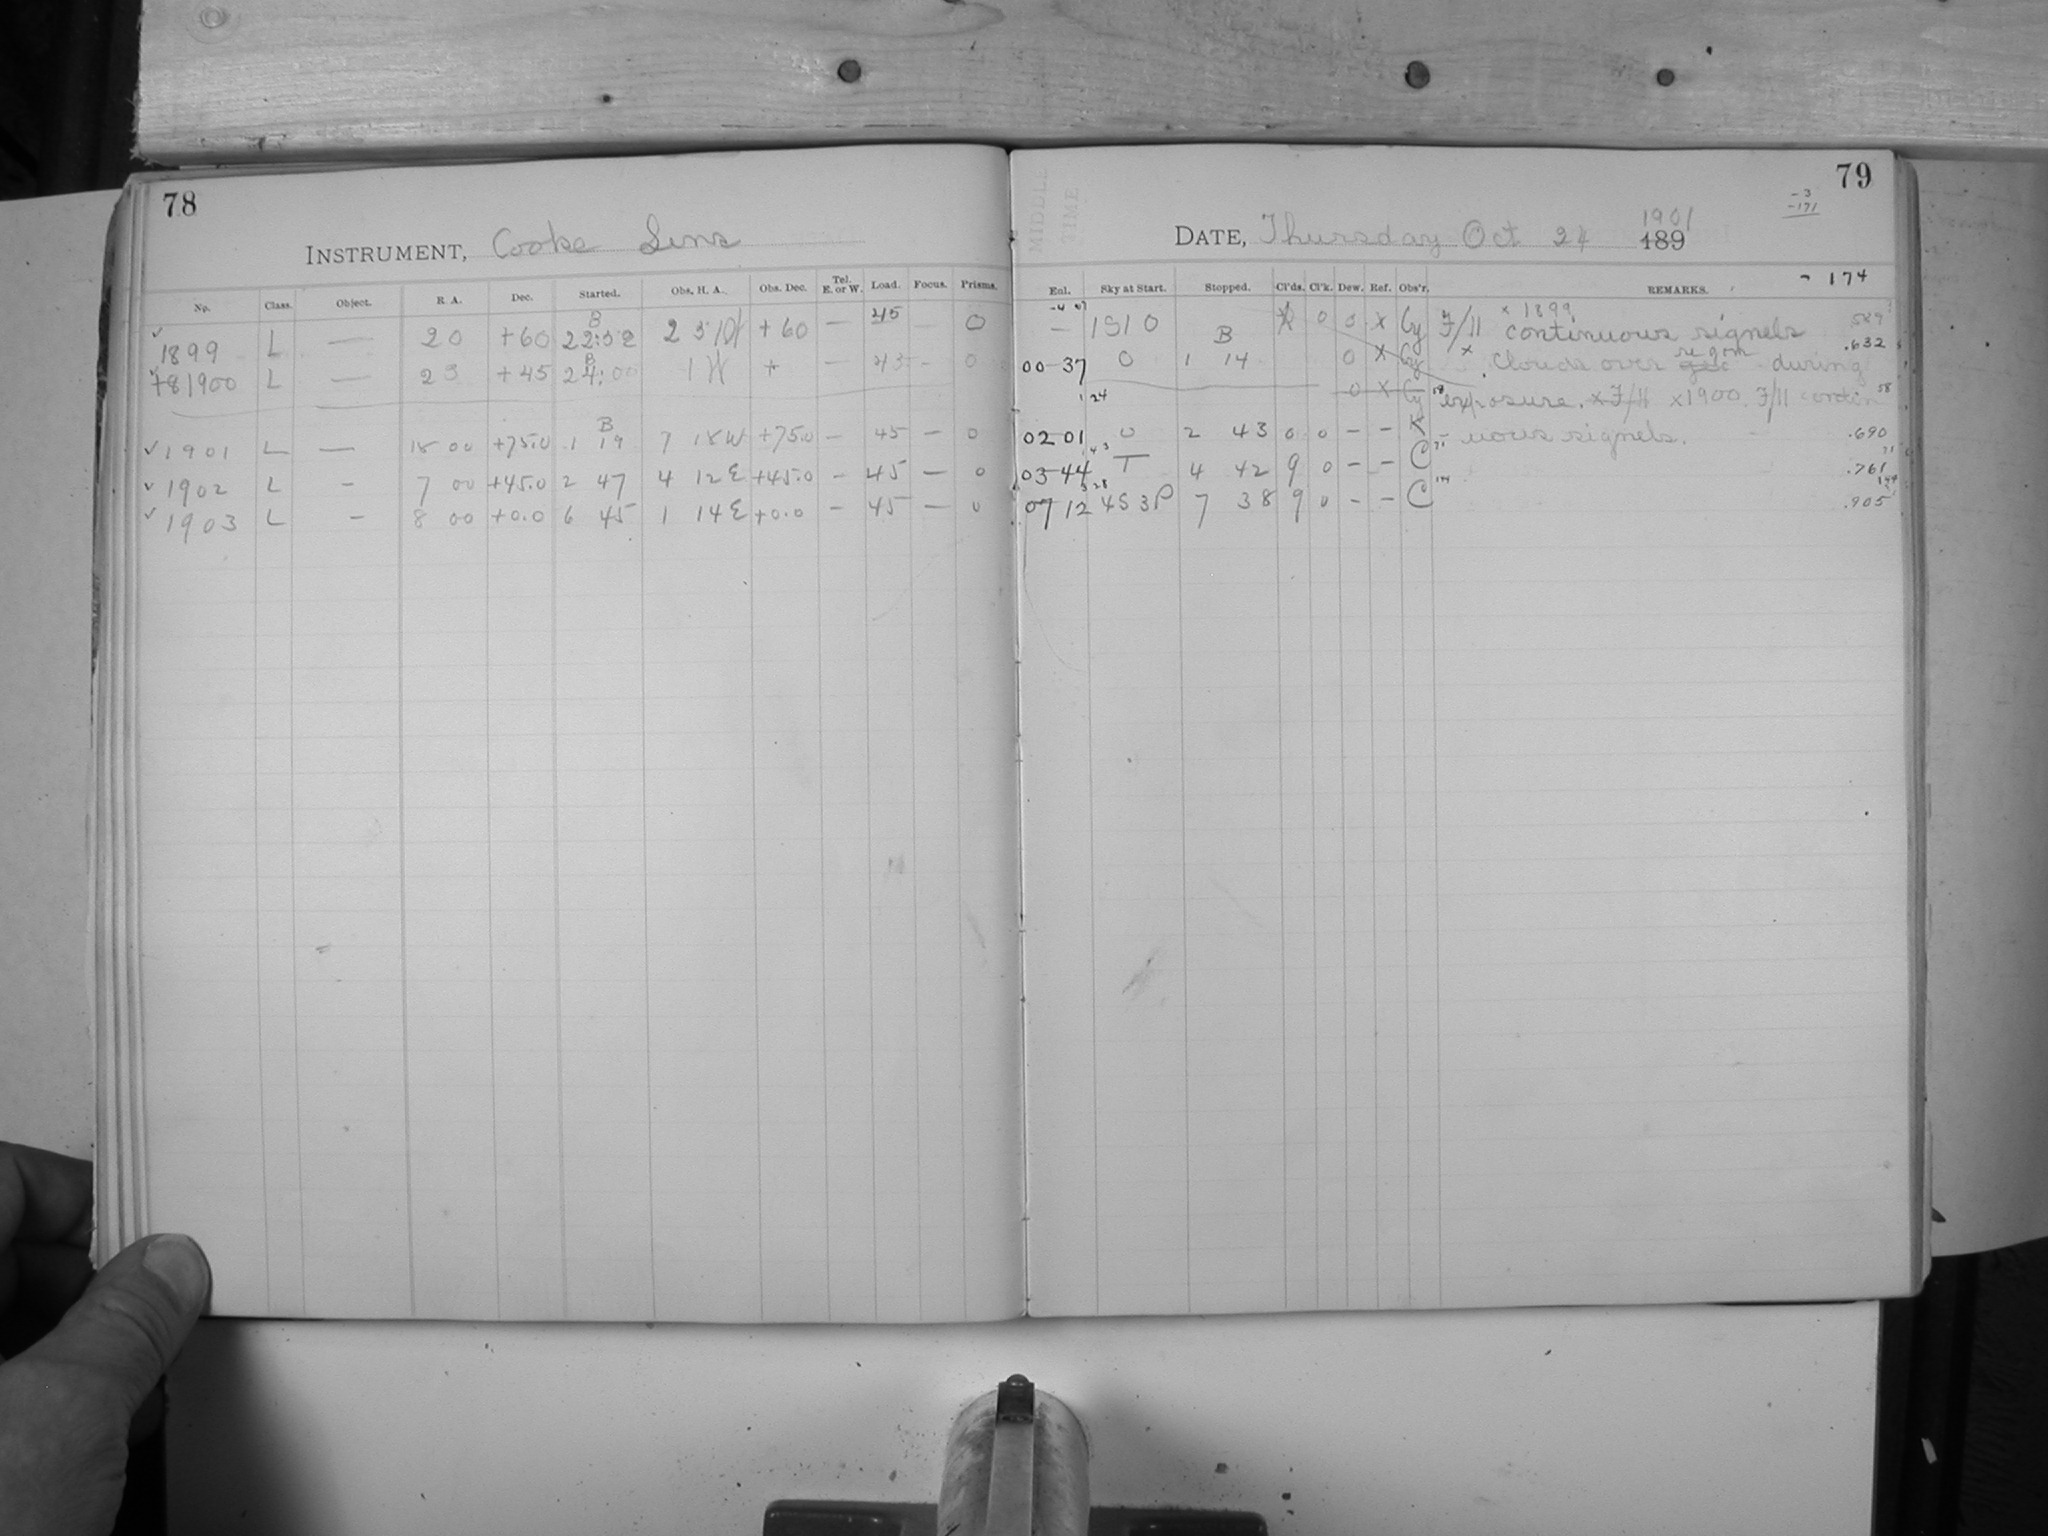 78
INSTRUMENT, Cooke Lens
No. Class. Object. R. A. Dec. Started. Obs. H. A. Obs. Dec. Tel. E. or W. Load. Focus. Prisms.
1899 L — 20 +60 22:52 +60 — 45 — 0
1900 L — 23 +45 24:00 1 W + — 45 — 0
1901 L — 18 00 +75.0 1 19 7 18W +75.0 — 45 — 0
1902 L — 7 00 +45.0 2 47 4 12E +45.0 — 45 — 0
1903 L — 8 00 +0.0 6 45 1 14E +0.0 — 45 — 0
79
MIDDLE TIME
-3
-171
DATE, Thursday Oct 24 1901
189
Enl. Sky at Start. Stopped. Cl'ds. Cl'k. Dew. Ref. Obs'r. REMARKS. - 174
— 1S10 0 0 x Cy F/11 x 1899 continuous signels .589
00-37 0 B 1 14 0 x Cy x Clouds over region during .632
1 24 0 x Cy exposure. x F/11 x1900. F/11 contin 58
02 01 0 2 43 0 0 — — K — uous signels. .690
03-44 T 4 42 9 0 — — C 71 .761
07 12 4S3P 7 38 9 0 — — C 144 .905